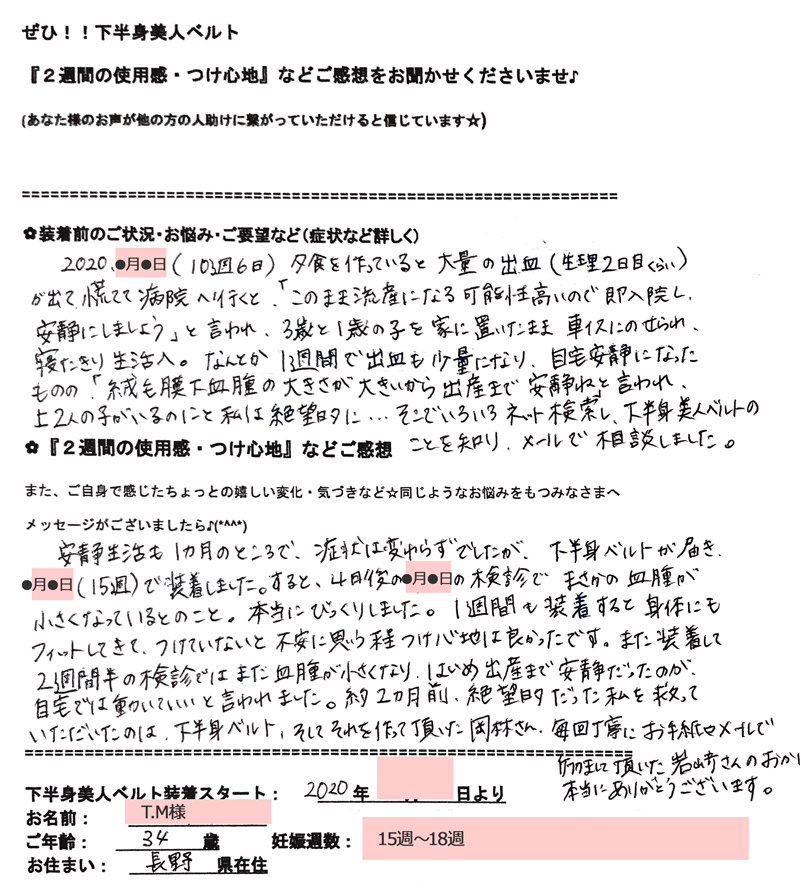 ぜひ！！下半身美人ベルト
『２週間の使用感・つけ心地』などご感想をお聞かせくださいませ♪
(あなた様のお声が他の方の人助けに繋がっていただけると信じています☆)
==============================================================
✿装着前のご状況・お悩み・ご要望など（症状など詳しく）
2020、●月●日（10週6日）夕食を作っていると大量の出血（生理2日目くらい）
が出て慌てて病院へ行くと、「このまま流産になる可能性高いので即入院し、
安静にしましょう」と言われ、3歳と1歳の子を家に置いたまま車イスにのせられ、
寝たきり生活へ。なんとか1週間で出血も少量になり、自宅安静になった
ものの「絨毛膜下血腫の大きさが大きいから出産まで安静ねと言われ、
上2人の子がいるのにと私は絶望的に…そこでいろいろネット検索し、下半身美人ベルトの
ことを知り、メールで相談しました。
✿『２週間の使用感・つけ心地』などご感想
また、ご自身で感じたちょっとの嬉しい変化・気づきなど☆同じようなお悩みをもつみなさまへ
メッセージがございましたら♪(*^^*)
安静生活も1カ月のところで、症状は変わらずでしたが、下半身ベルトが届き、
●月●日（15週）で装着しました。すると、4日後の●月●日の検診でまさかの血腫が
小さくなっているとのこと。本当にびっくりしました。1週間も装着すると身体にも
フィットしてきて、つけていないと不安に思う程つけ心地は良かったです。また装着して
2週間半の検診ではまた血腫が小さくなり、はじめ出産まで安静だったのが、
自宅では動いていいと言われました。約2カ月前、絶望的だった私を救って
いただいたのは、下半身ベルト、そしてそれを作って頂いた岡林さん、毎回丁寧にお手紙やメールで
励まして頂いた岩崎さんのおかげ
本当にありがとうございます。
==============================================================
下半身美人ベルト装着スタート： 2020 年 日より
お名前： T.M様
ご年齢： 34 歳 妊娠週数： 15週～18週
お住まい： 長野 県在住